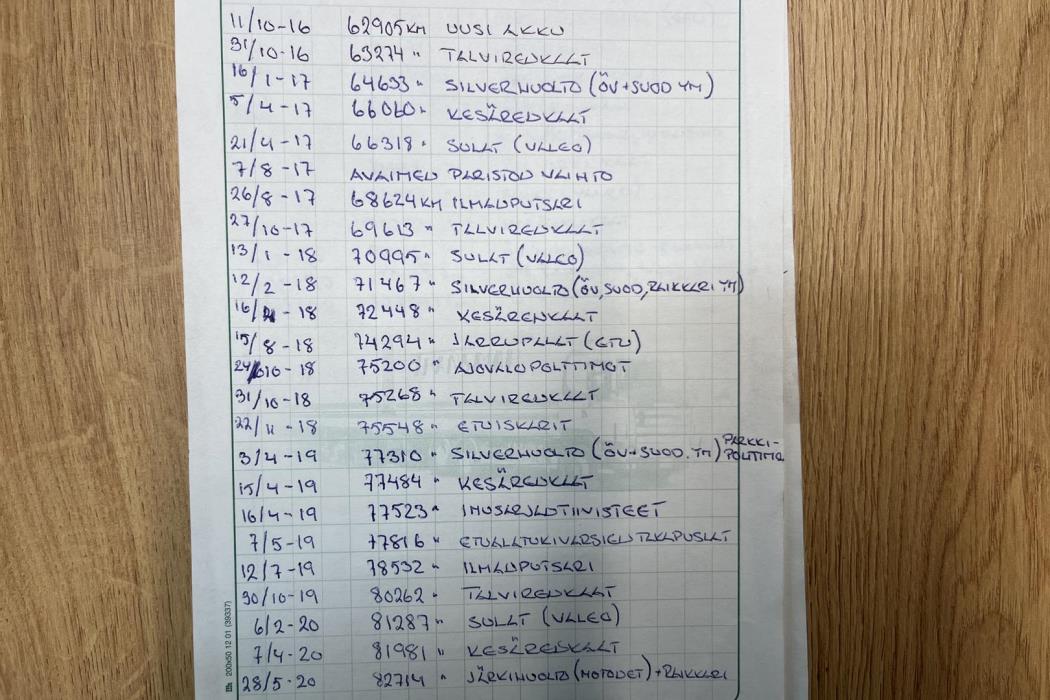 11/10-16 62905KM UUSI AKKU
31/10-16 63274 " TALVIRENKAAT
16/1-17 64633 " SILVERHUOLTO (ÖV+SUOD YM)
5/4-17 66060 " KESÄRENKAAT
21/4-17 66318 " SULAT (VALEO)
7/8-17 AVAIMEN PARISTON VAIHTO
26/8-17 68624KM ILMANPUTSARI
27/10-17 69613 " TALVIRENKAAT
13/1-18 70995 " SULAT (VALEO)
12/2-18 71467 " SILVERHUOLTO (ÖV, SUOD, RAIKKARI YM)
16/4-18 72448 " KESÄRENKAAT
15/8-18 74294 " JARRUPALAT (ETU)
24/10-18 75200 " AJOVALOPOLTTIMOT
31/10-18 75268 " TALVIRENKAAT
22/11-18 75548 " ETUISKARIT
3/4-19 77310 " SILVERHUOLTO (ÖV+SUOD. YM) PARKKI-
POLTTIMO
15/4-19 77484 " KESÄRENKAAT
16/4-19 77523 " IMUSARJANTIIVISTEET
7/5-19 77816 " ETUALATUKIVARSIEN TAKAPUSLAT
12/7-19 78532 " ILMANPUTSARI
30/10-19 80262 " TALVIRENKAAT
6/2-20 81287 " SULAT (VALEO)
7/4-20 81981 " KESÄRENKAAT
28/5-20 82714 " JÄRKIHUOLTO (MOTONET) + RAIKKARI
200x50 12 01 (39337)